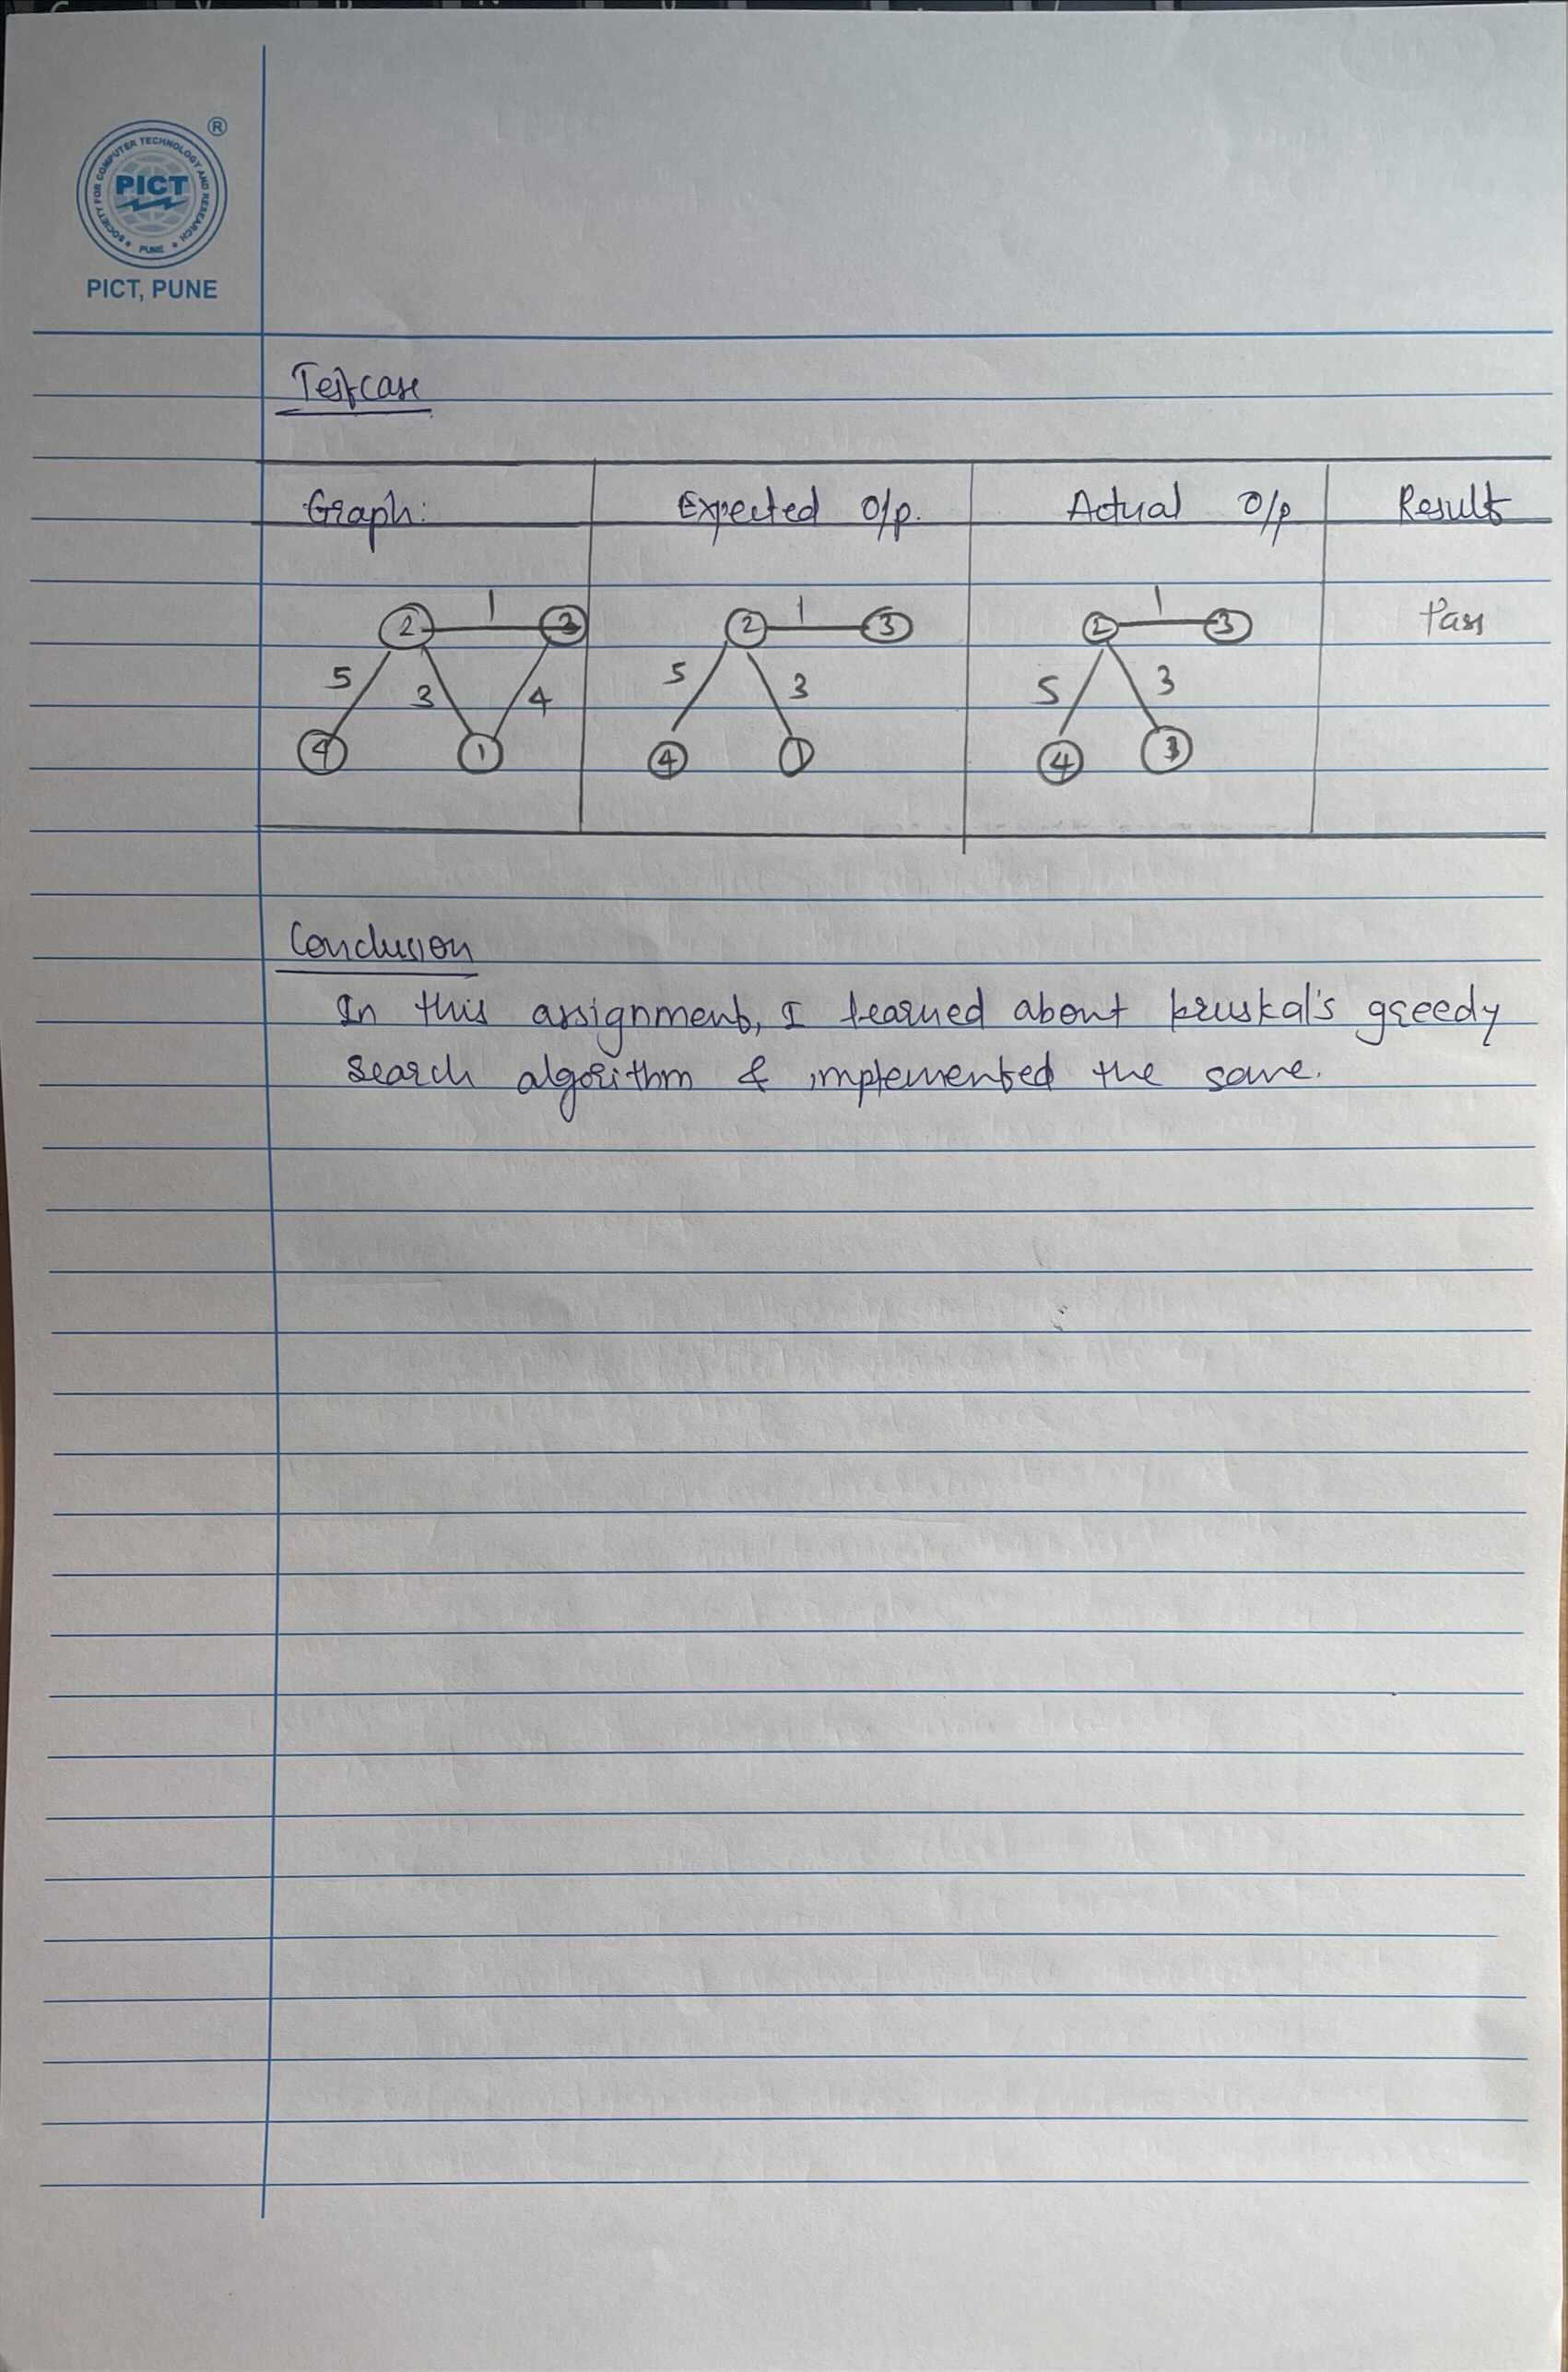 ®
SOCIETY FOR COMPUTER TECHNOLOGY AND RESEARCH
PICT
PUNE
PICT, PUNE
Testcase
Graph: Expected o/p. Actual o/p Result
1 1 1
2 3 2 3 2 3 Pass
5 3 4 5 3 5 3
4 1 4 1 4 3
Conclusion
In this assignment, I learned about kruskal's greedy
search algorithm & implemented the same.